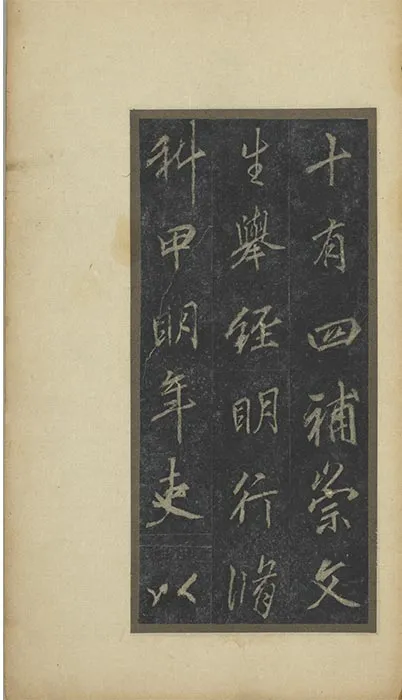 十有四補崇文
生舉經明行脩
科甲明年吏以